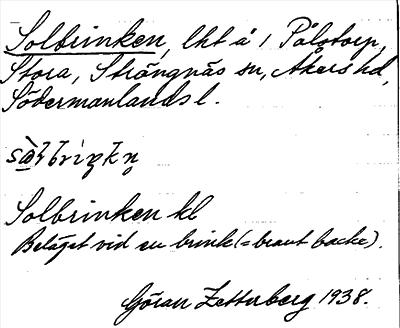 Solbrinken, lht å 1 Pålstorp,
Stora, Strängnäs sn, Åkers hd,
Södermanlands l.
Solbrinken kl
Beläget vid en brink (= brant backe).
Göran Zetterberg 1938.